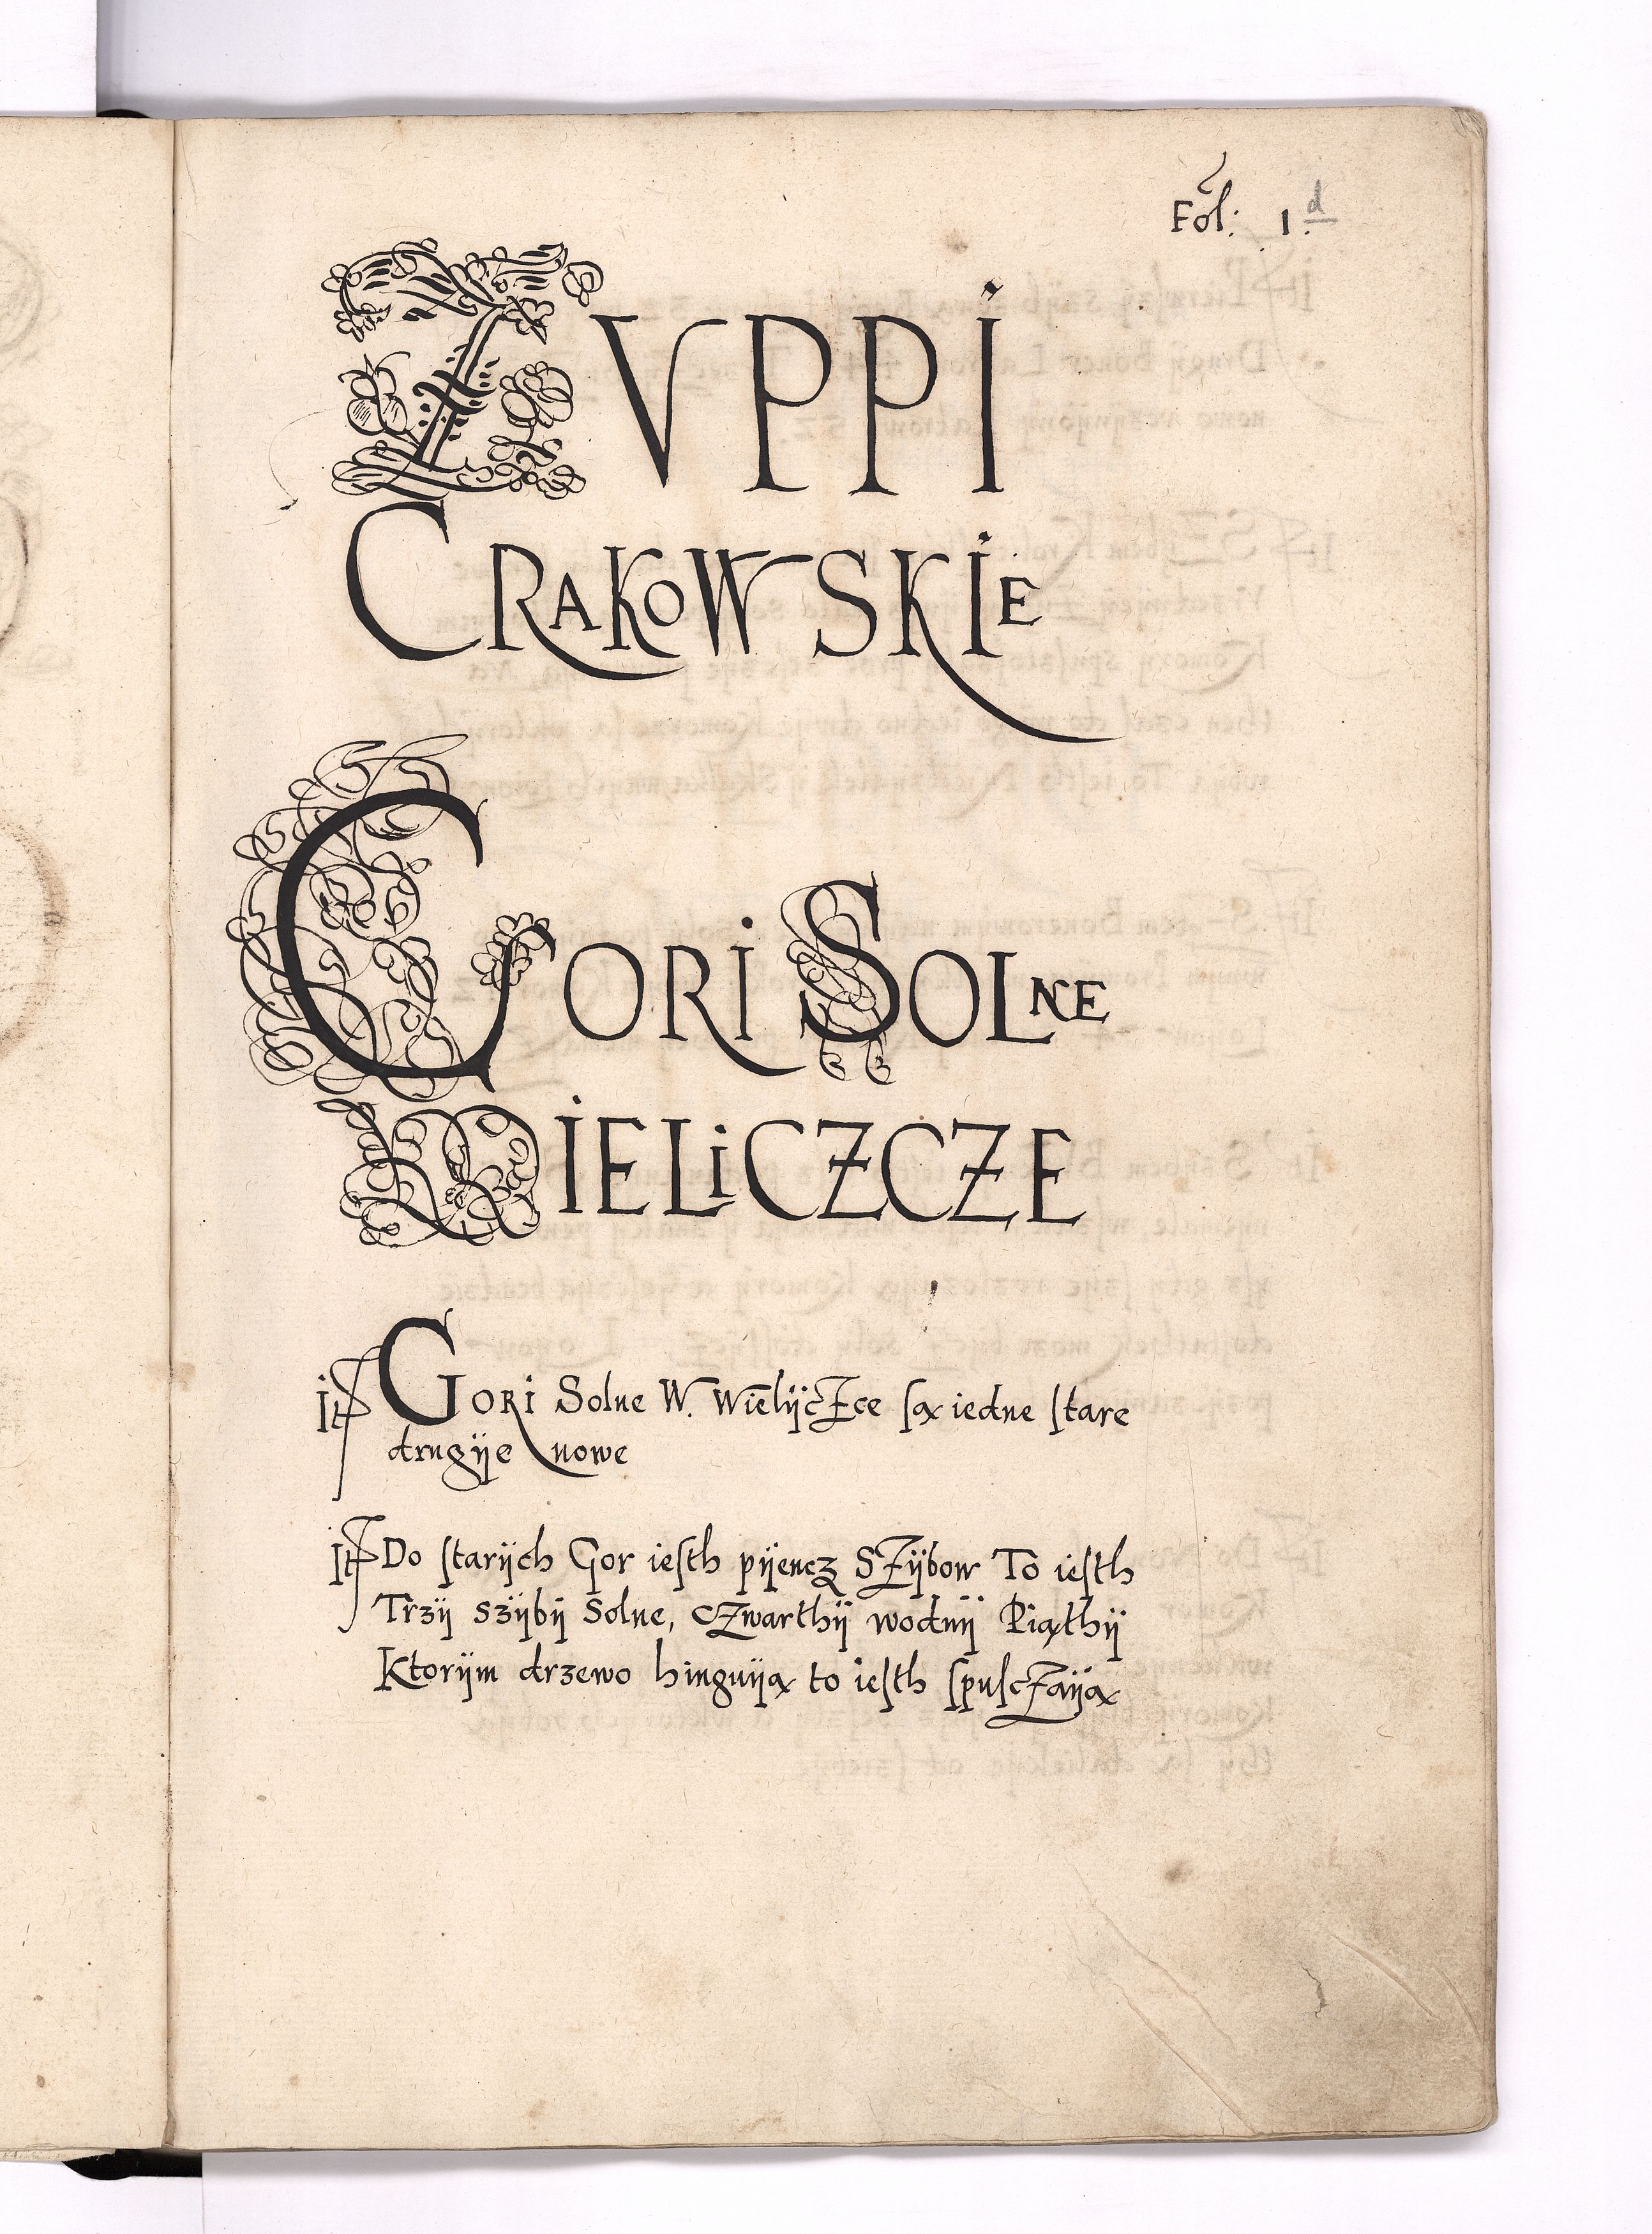 Fol: 1 d
ZVPPI
CRAKOWSKIE
GORI SOLNE
WIELICZCZE
It GORI Solne W. WielijcZce ſą iedne ſtare
drugije nowe
It Do ſtarijch Gor ieſth pijencz SZijbow To ieſth
Trzij szijbij Solne, cZwarthij wodnij Piąthij
Ktorijm drzewo hinguiją to ieſth ſpuſcZaiją